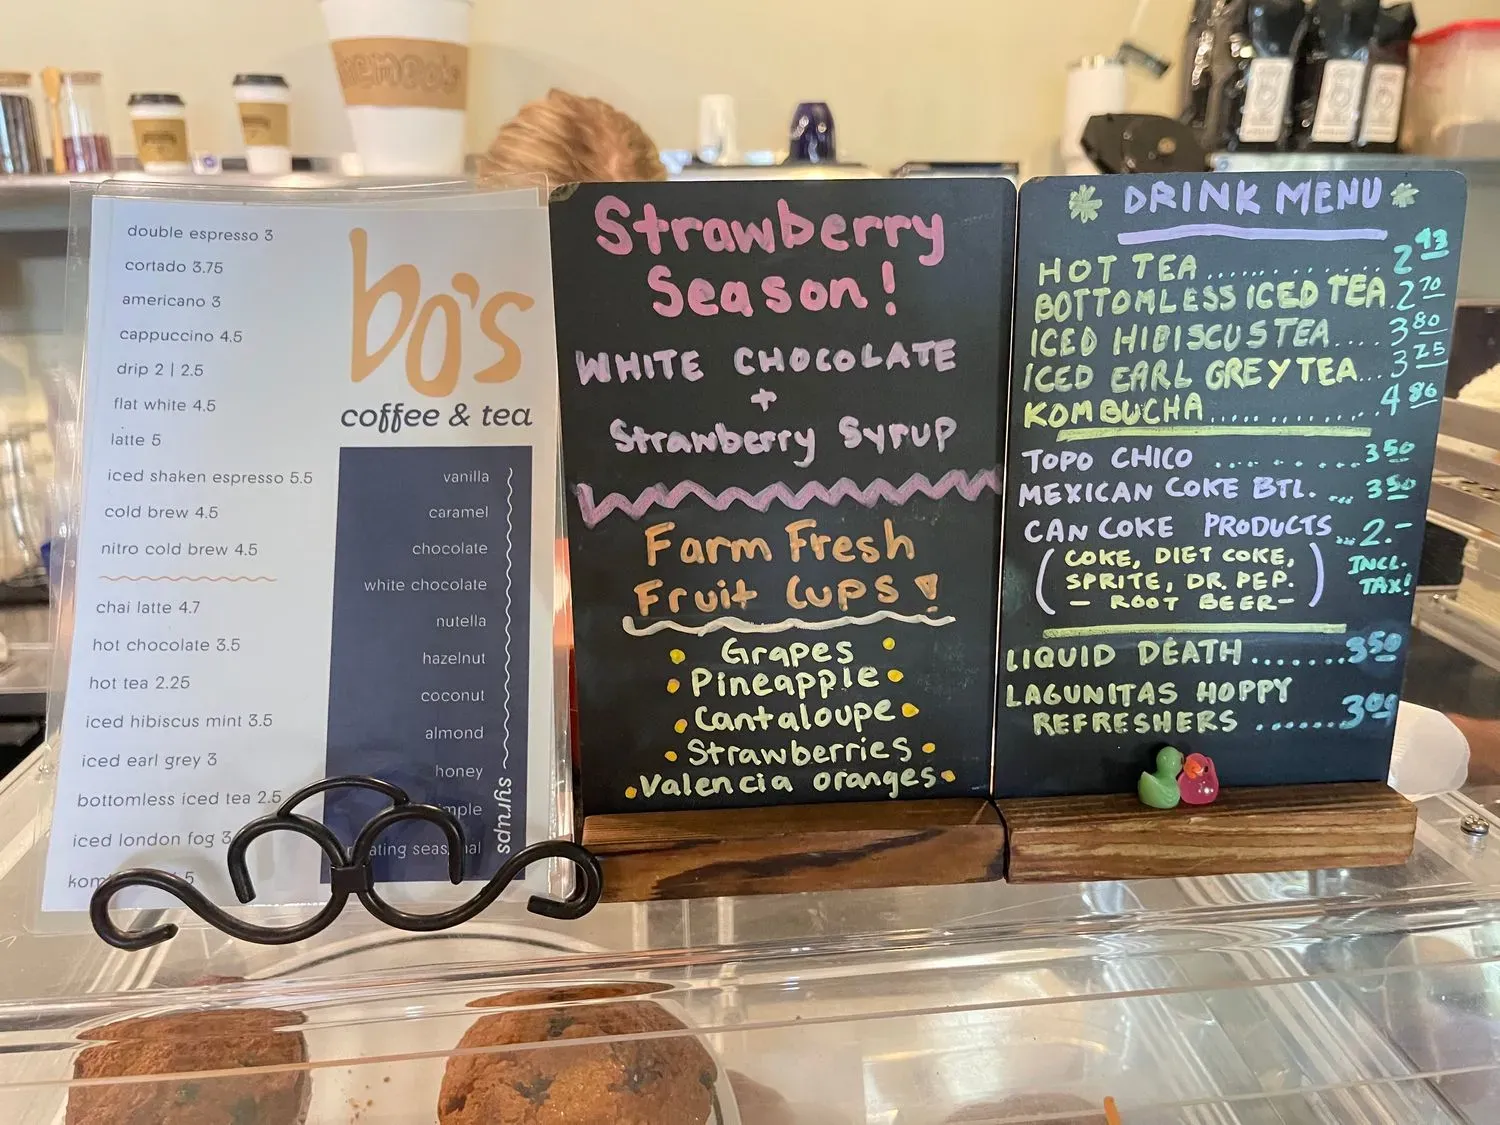 double espresso 3
cortado 3.75
americano 3
cappuccino 4.5
drip 2 | 2.5
flat white 4.5
latte 5
iced shaken espresso 5.5
cold brew 4.5
nitro cold brew 4.5
chai latte 4.7
hot chocolate 3.5
hot tea 2.25
iced hibiscus mint 3.5
iced earl grey 3
bottomless iced tea 2.5
iced london fog
bo's
coffee & tea
vanilla
caramel
chocolate
white chocolate
nutella
hazelnut
coconut
almond
honey
syrups
Strawberry
Season!
WHITE CHOCOLATE
+
Strawberry Syrup
Farm Fresh
Fruit Cups!
Grapes
Pineapple
Cantaloupe
Strawberries
Valencia oranges
DRINK MENU
HOT TEA............ 2.43
BOTTOMLESS ICED TEA. 2.70
ICED HIBISCUS TEA.... 3.80
ICED EARL GREY TEA... 3.25
KOMBUCHA............ 4.86
TOPO CHICO ........... 3.50
MEXICAN COKE BTL. ... 3.50
CAN COKE PRODUCTS... 2.-
(COKE, DIET COKE,
SPRITE, DR. PEP.
- ROOT BEER-)
INCL.
TAX!
LIQUID DEATH....... 3.50
LAGUNITAS HOPPY
REFRESHERS ...... 3.00